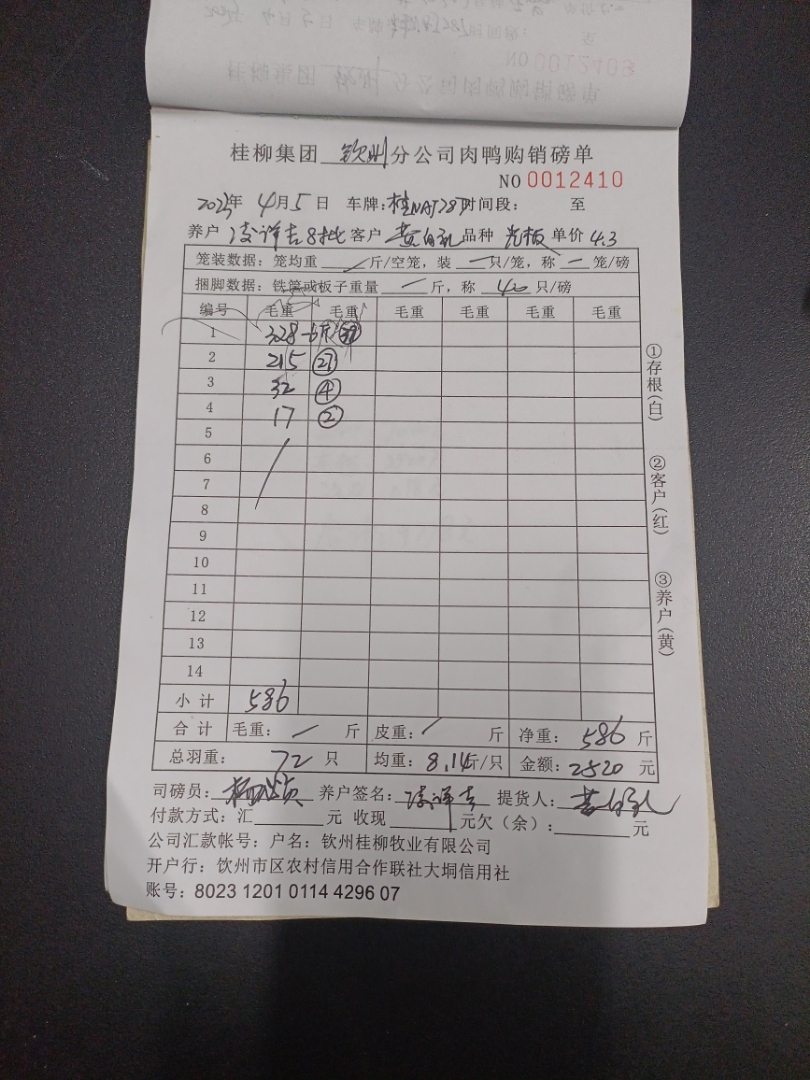 桂柳集团 钦州 分公司肉鸭购销磅单
NO 0012410
2025年 4月5日 车牌：桂NAJ787 时间段： 至
养户 凌祥吉8批 客户 黄自礼 品种 光板 单价 4.3
笼装数据：笼均重 / 斤/空笼，装 一 只/笼，称 一 笼/磅
捆脚数据：铁筐或板子重量 一 斤，称 40 只/磅
编号 毛重 毛重 毛重 毛重 毛重 毛重
1 328-6斤
2 215 ㉗
3 32 ④
4 17 ②
5
6
7
8
9
10
11
12
13
14
小计 586
合计 毛重： / 斤 皮重： / 斤 净重： 586 斤
总羽重： 72 只 均重： 8.14斤/只 金额：2520 元
司磅员： 养户签名：凌祥吉 提货人：黄自礼
付款方式：汇 元 收现 元欠（余）： 元
公司汇款帐号：户名：钦州桂柳牧业有限公司
开户行：钦州市区农村信用合作联社大垌信用社
账号：8023 1201 0114 4296 07
①存根（白）
②客户（红）
③养户（黄）